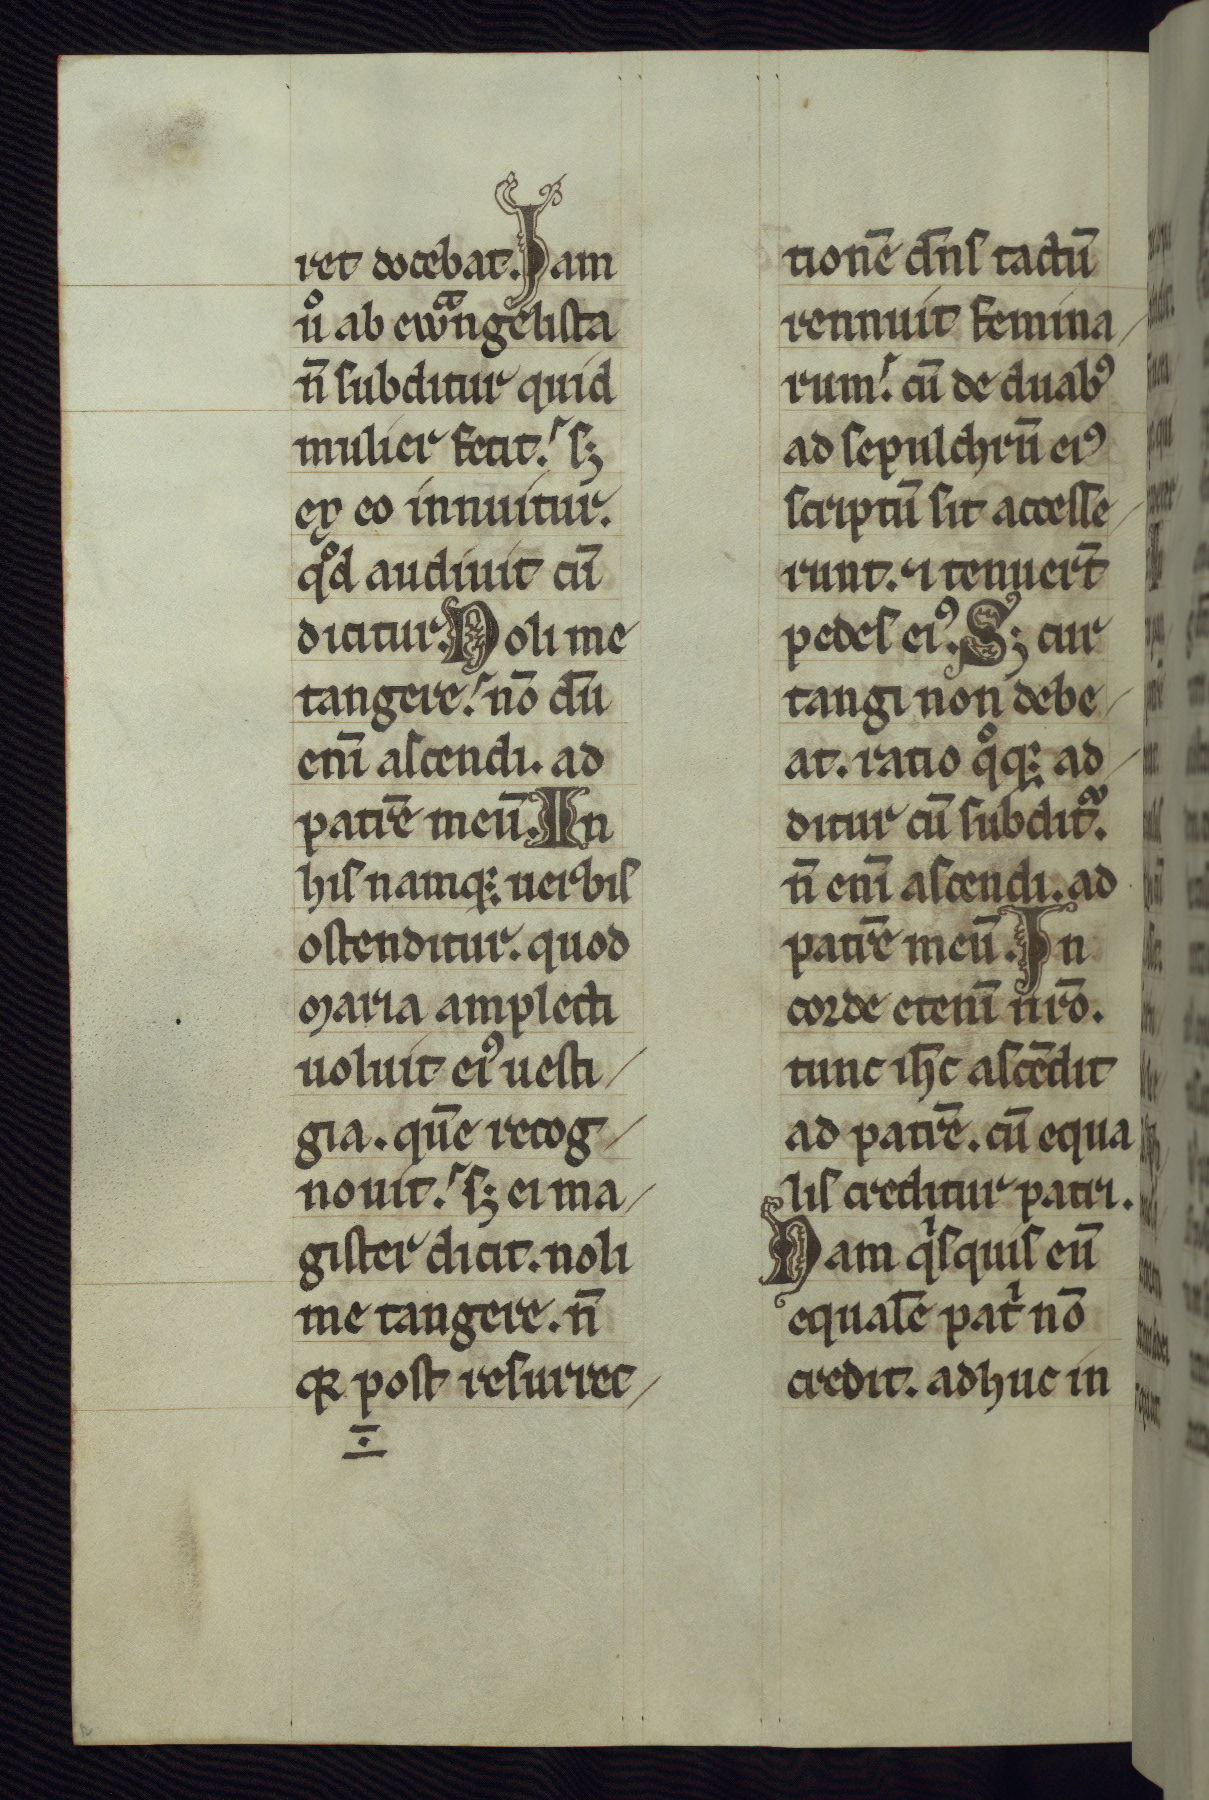 ret docebat. Jam
uͦ ab ewāngelista
n̄ subditur quid
mulier fecit. sꝫ
ex eo innuitur.
qͦd audiuit cū
dicitur. Noli me
tangere. nō dū
enī ascendi. ad
patrē meū. In
his namqꝫ uerbis
ostenditur. quod
maria amplecti
uoluit eiꝰ uesti/
gia. quē recog/
nouit. sꝫ ei ma/
gister dicit. noli
me tangere. n̄
qꝛ post resurrec/
·I·
tionē dn̄s tactū
rennuit femina/
rum. cū de duabꝰ
ad sepulchrū eiꝰ
scriptū sit accesse/
runt. ⁊ tenuerт̄
pedes eiꝰ. Sꝫ cur
tangi non debe/
at. ratio qͦqꝫ ad/
ditur cū subditᷓ.
n̄ enī ascendi. ad
patrē meū. Jn
corde etenī nr̄o.
tunc ih̄c ascēdit
ad patrē. cū equa
lis creditur patri.
Nam qͥsquis eū
equalē patͥ nō
credit. adhuc in